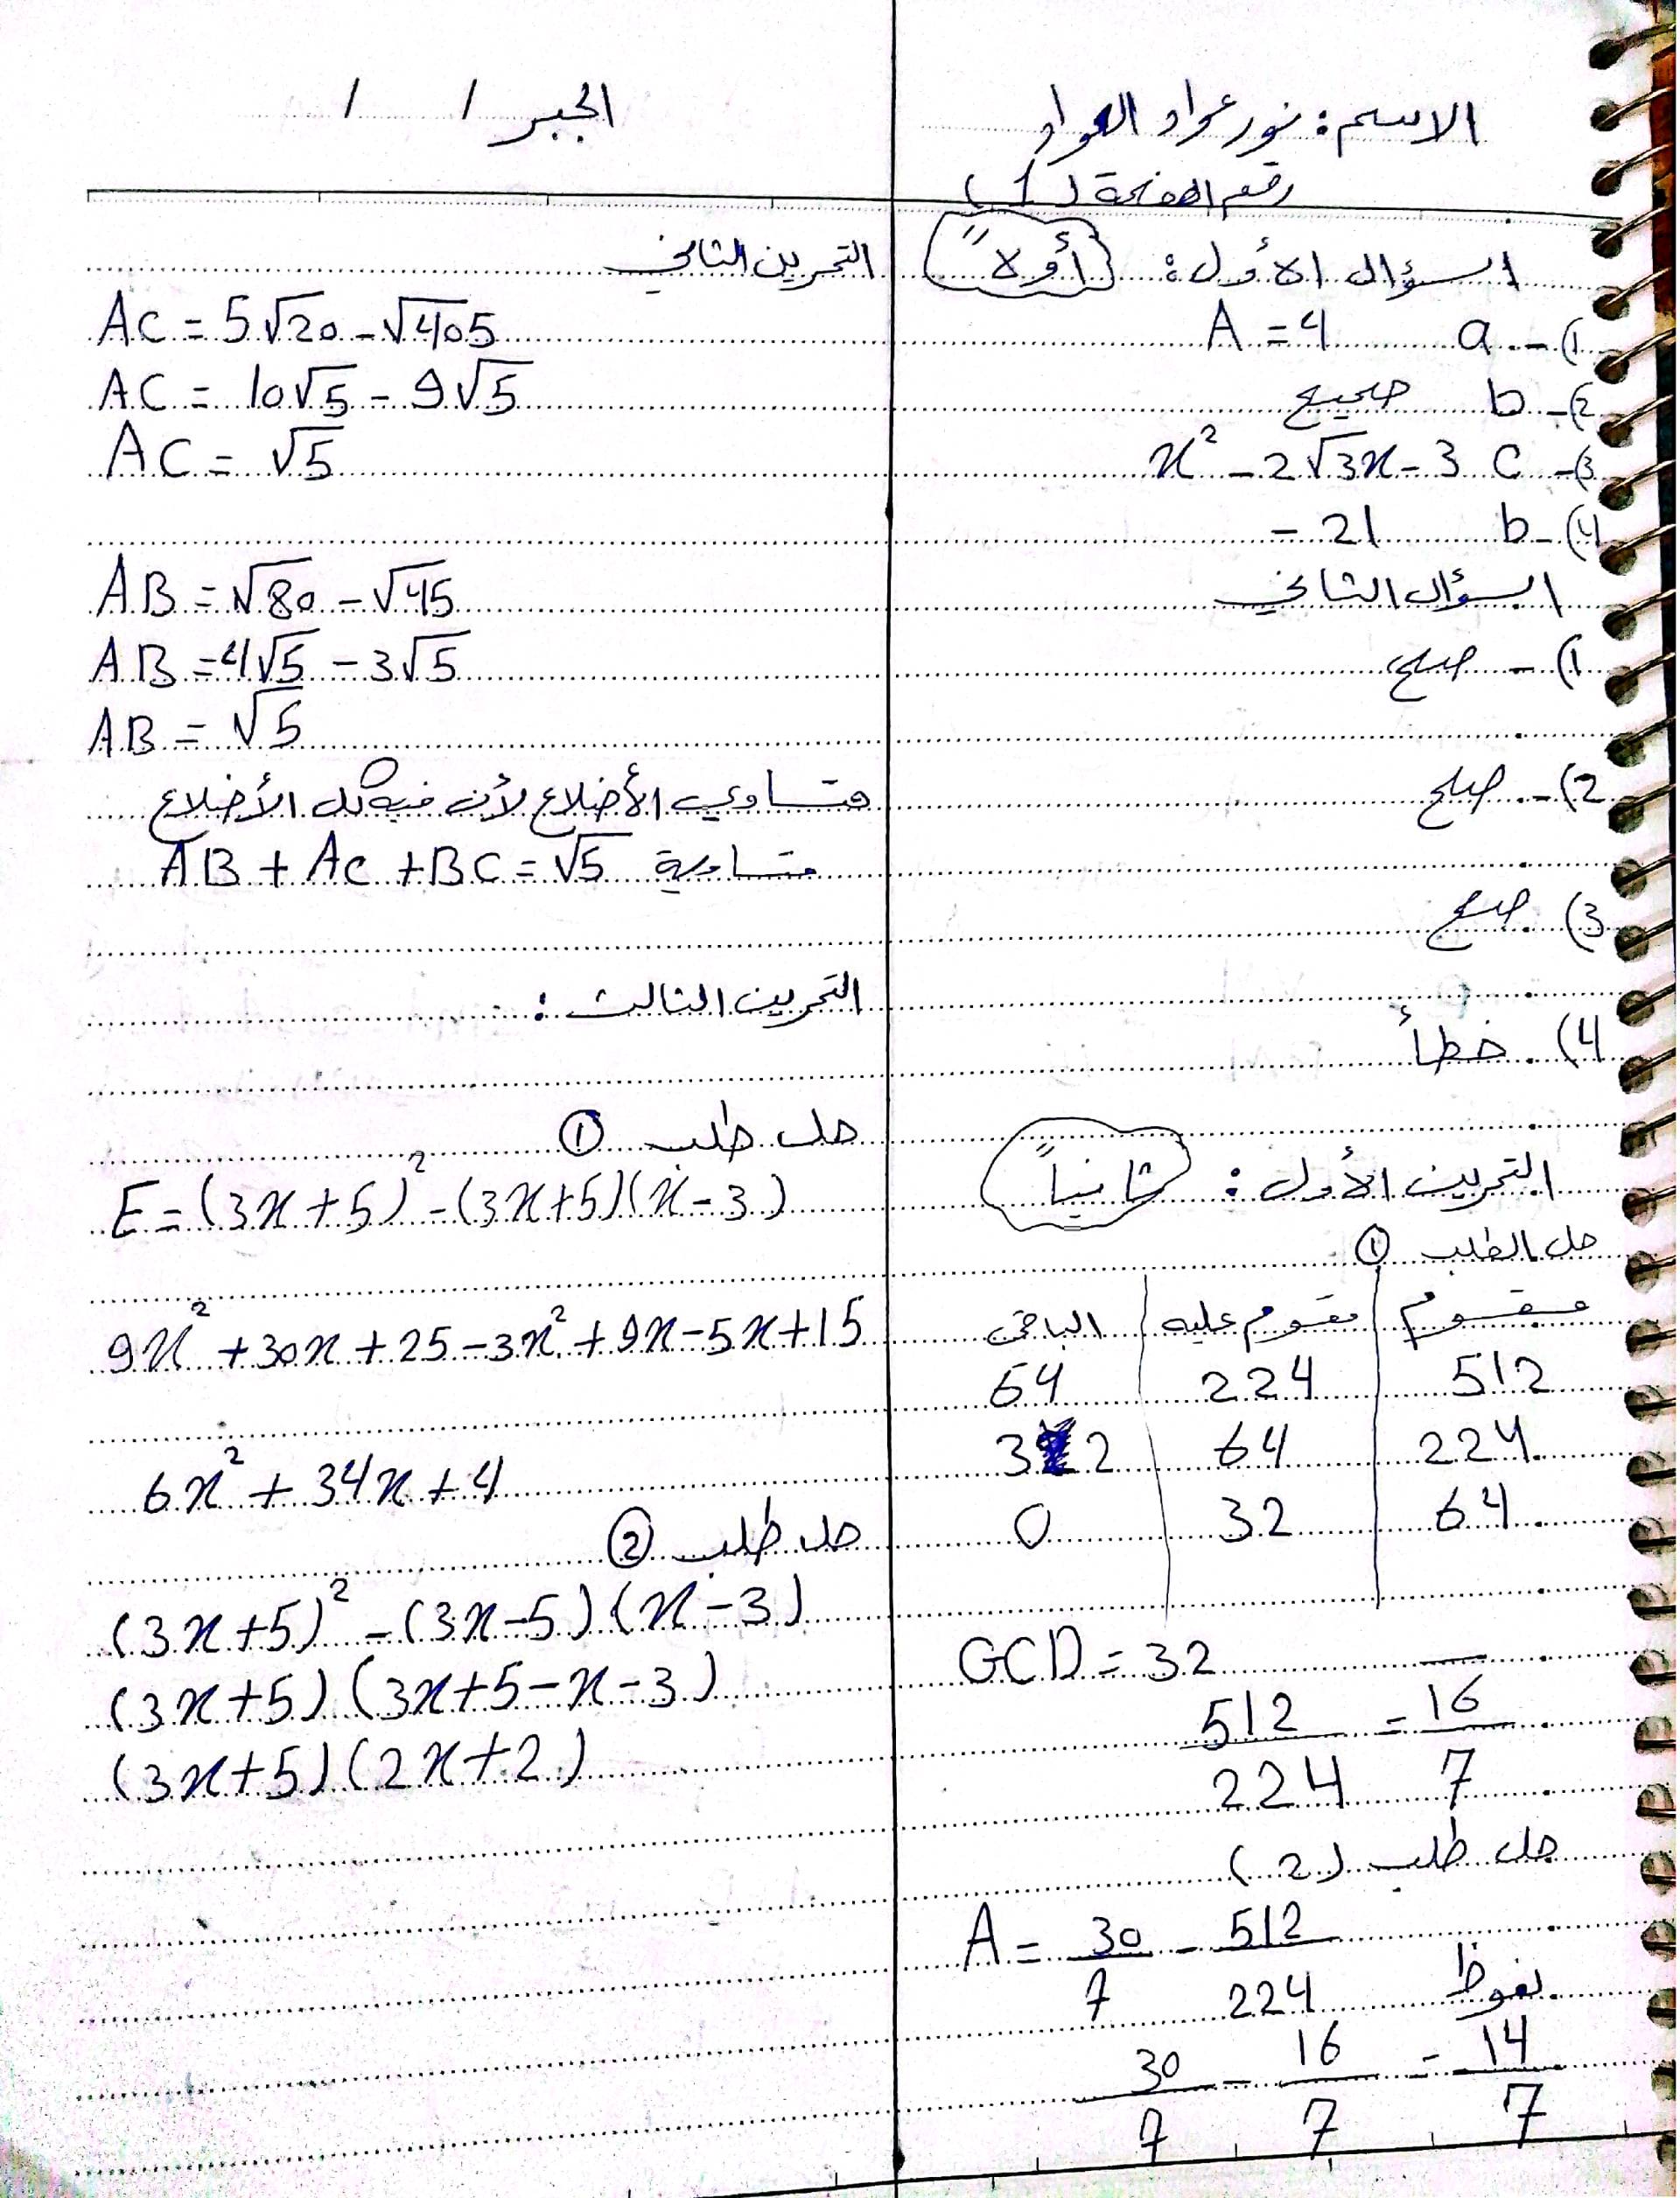 الاسم: نور عواد العواد
الجبر / /
رقم الصفحة (1)
السؤال الأول: أولاً
1)- a A = 4
2)- b صحيح
3)- c x² - 2√3x - 3
4)- b - 21
السؤال الثاني
1)- صح
2)- صح
3) صح
4) خطأ
التمرين الأول: ثانياً
حل الطلب ①
مقسوم | مقسوم عليه | الباقي
512 | 224 | 64
224 | 64 | 32
64 | 32 | 0
GCD = 32
512/224 = 16/7
حل طلب (2)
A = 30/7 - 512/224
نعوظ
30/7 - 16/7 = 14/7
التمرين الثاني
AC = 5√20 - √405
AC = 10√5 - 9√5
AC = √5
AB = √80 - √45
AB = 4√5 - 3√5
AB = √5
متساوي الأضلاع لأن فيه كل الأضلاع
متساوية AB + AC + BC = √5
التمرين الثالث:
حل طلب ①
E = (3x + 5)² - (3x+5)(x - 3)
9x² + 30x + 25 - 3x² + 9x - 5x + 15
6x² + 34x + 4
حل طلب ②
(3x+5)² - (3x-5)(x-3)
(3x+5)(3x+5-x-3)
(3x+5)(2x+2)